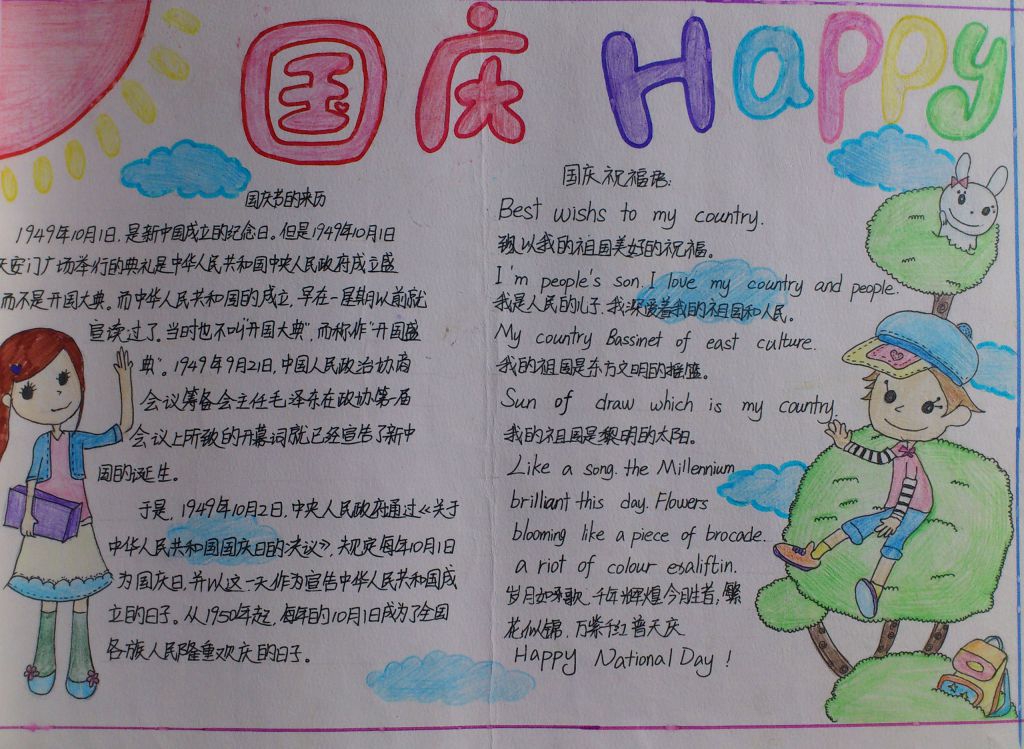 国庆 Happy
国庆节的来历
1949年10月1日,是新中国成立的纪念日。但是1949年10月1日
天安门广场举行的典礼是中华人民共和国中央人民政府成立盛
而不是开国大典。而中华人民共和国的成立,早在一星期以前就
宣读过了。当时也不叫"开国大典",而称作"开国盛
典"。1949年9月21日,中国人民政治协商
会议筹备会主任毛泽东在政协第一届
会议上所致的开幕词就已经宣告了新中
国的诞生。
于是,1949年10月2日,中央人民政府通过《关于
中华人民共和国国庆日的决议》,规定每年10月1日
为国庆日,并以这一天作为宣告中华人民共和国成
立的日子。从1950年起,每年的10月1日成为了全国
各族人民隆重欢庆的日子。
国庆祝福语:
Best wishs to my country.
致以我的祖国美好的祝福。
I'm people's son. I love my country and people.
我是人民的儿子,我深爱着我的祖国和人民。
My country Bassinet of east culture.
我的祖国是东方文明的摇篮。
Sun of draw which is my country.
我的祖国是黎明的太阳。
Like a song. the Millennium
brilliant this day. Flowers
blooming like a piece of brocade.
a riot of colour esaliftin.
岁月如歌,千年辉煌今月生者,繁
花似锦,万紫千红普天庆
Happy National Day!